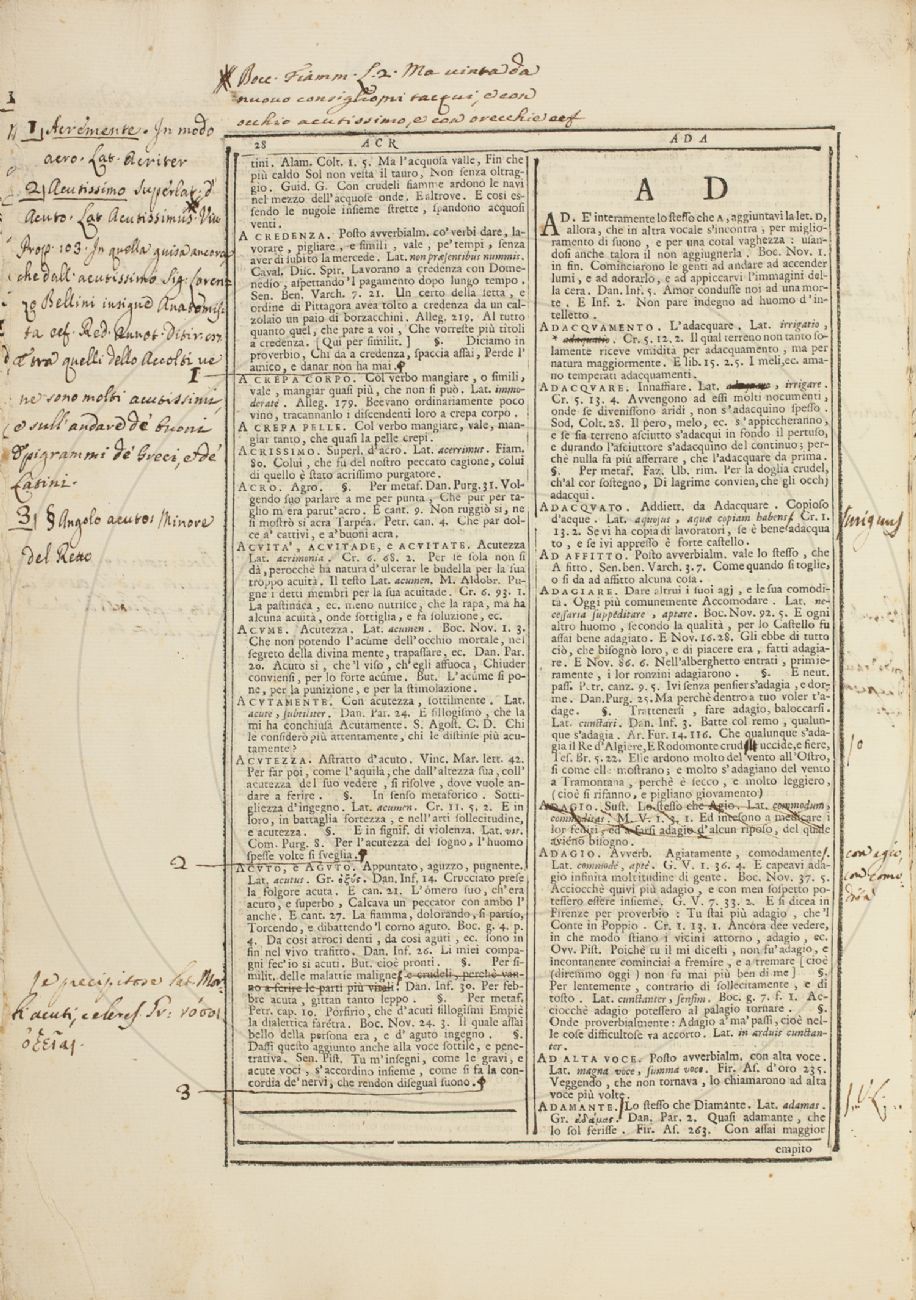 Bocc. Fiamm. L. 2. Ma vinta da
nuovo consiglio mi tacqui, e con
occhio acutissimo, e con orecchie ecc
1
1 Acremente. In modo
acro. Lat. Acriter
2 Acutissimo Superlat. d'
Acuto. Lat. Acutissimus. Viv.
Prop. 103. In quella guisa ancora
che dall' acutissimo Sig. Loren
zo Bellini insigne Anatomis
ta ecc. Red. Annot. Ditir.
tra quelli dello Accolti ve
1
ne sono molti acutissimi,
e sull' andare de' buoni
Epigrammi de' Greci, e de'
Latini.
3 § Angolo acuto: Minore
del Retto
2
le precipitose lat. Mor
bi acuti, celeres Gr. νόσοι
ὀξεῖαι.
3
28 ACR
tini. Alam. Colt. 1. 5. Ma l'acquosa valle, Fin che
più caldo Sol non vesta il tauro, Non senza oltrag-
gio. Guid. G. Con crudeli fiamme ardono le navi
nel mezzo dell'acquose onde. E altrove. E così es-
sendo le nugole insieme strette, spandono acquosi
venti.
A CREDENZA. Posto avverbialm. co' verbi dare, la-
vorare, pigliare, e simili, vale, pe' tempi, senza
aver di subito la mercede. Lat. non præsentibus nummis.
Caval. Disc. Spir. Lavorano a credenza con Dome-
nedio, aspettando 'l pagamento dopo lungo tempo.
Sen. Ben. Varch. 7. 21. Un certo della setta, e
ordine di Pittagora avea tolto a credenza da un cal-
zolaio un paio di borzacchini. Alleg. 219. Al tutto
quanto quel, che pare a voi, Che vorreste più titoli
a credenza. [Qui per similit.] §. Diciamo in
proverbio, Chi dà a credenza, spaccia assai, Perde l'
amico, e danar non ha mai.
A CREPA CORPO. Col verbo mangiare, o simili,
vale, mangiar quasi più, che non si può. Lat. immo-
deratè. Alleg. 179. Beevano ordinariamente poco
vino, tracannanlo i discendenti loro a crepa corpo.
A CREPA PELLE. Col verbo mangiare, vale, man-
giar tanto, che quasi la pelle crepi.
ACRISSIMO. Superl. d'acro. Lat. acerrimus. Fiam.
80. Colui, che fù del nostro peccato cagione, colui
di quello è stato acrissimo purgatore.
ACRO. Agro. §. Per metaf. Dan. Purg. 31. Vol-
gendo suo parlare a me per punta, Che pur per ta-
glio m'era parut'acro. E cant. 9. Non ruggiò sì, ne
si mostrò sì acra Tarpéa. Petr. can. 4. Che par dol-
ce a' cattivi, e a' buoni acra.
ACVITA', ACVITADE, e ACVITATE. Acutezza
Lat. acrimonia. Cr. 6. 68. 2. Per se sola non si
dà, perocchè ha natura d'ulcerar le budella per la sua
troppo acuità. Il testo Lat. acumen. M. Aldobr. Pu-
gne i detti membri per la sua acuitade. Cr. 6. 93. 1.
La pastinaca, ec. meno nutrisce, che la rapa, ma ha
alcuna acuità, onde sottiglia, e fa soluzione, ec.
ACVME. Acutezza. Lat. acumen. Boc. Nov. 1. 3.
Che non potendo l'acume dell'occhio mortale, nel
segreto della divina mente, trapassare, ec. Dan. Par.
20. Acuto sì, che 'l viso, ch'egli affuoca, Chiuder
conviensi, per lo forte acume. But. L'acume si po-
ne, per la punizione, e per la stimolazione.
ACVTAMENTE. Con acutezza, sottilmente. Lat.
acute, subtiliter. Dan. Par. 24. È sillogismo, che la
mi ha conchiusa Acutamente. S. Agost. C. D. Chi
le considerò più attentamente, chi le distinse più acu-
tamente?
ACVTEZZA. Astratto d'acuto. Vinc. Mar. lett. 42.
Per far poi, come l'aquila, che dall'altezza sua, coll'
acutezza del suo vedere, si risolve, dove vuole an-
dare a ferire. §. In senso metaforico. Sotti-
gliezza d'ingegno. Lat. acumen. Cr. 11. 5. 2. E in
loro, in battaglia fortezza, e nell'arti sollecitudine,
e acutezza. §. E in signif. di violenza. Lat. vis.
Com. Purg. 8. Per l'acutezza del sogno, l'huomo
spesse volte si sveglia.
ACVTO, e AGVTO. Appuntato, aguzzo, pugnente.
Lat. acutus. Gr. ὀξύς. Dan. Inf. 14. Crucciato prese
la folgore acuta. E can. 21. L'ómero suo, ch'era
acuto, e superbo, Calcava un peccator con ambo l'
anche. E cant. 27. La fiamma, dolorando, si partìo,
Torcendo, e dibattendo 'l corno aguto. Boc. g. 4. p.
4. Da così atroci denti, da così aguti, ec. sono in
fin nel vivo trafitto. Dan. Inf. 26. Li miei compa-
gni fec'io sì acuti. But. cioè pronti. §. Per si-
milit. delle malattie maligne, e crudeli, perchè van-
no a ferire le parti più vitali. Dan. Inf. 30. Per feb-
bre acuta, gittan tanto leppo. §. Per metaf.
Petr. cap. 10. Porfirio, che d'acuti sillogismi Empiè
la dialettica farétra. Boc. Nov. 24. 3. Il quale assai
bello della persona era, e d'aguto ingegno. §.
Dassi questo aggiunto anche alla voce sottile, e pene-
trativa. Sen. Pist. Tu m'insegni, come le gravi, e
acute voci, s'accordino insieme, come si fa la con-
cordia de' nervi, che rendon disegual suono.
ADA
AD
AD. E' interamente lo stesso che A, aggiuntavi la let. D,
allora, che in altra vocale s'incontra, per miglio-
ramento di suono, e per una cotal vaghezza: usan-
dosi anche talora il non aggiugnerla. Boc. Nov. 1.
in fin. Cominciarono le genti ad andare ad accender
lumi, e ad adorarlo, e ad appiccarvi l'immagini del-
la cera. Dan. Inf. 5. Amor condusse noi ad una mor-
te. E Inf. 2. Non pare indegno ad huomo d'in-
telletto.
ADACQVAMENTO. L'adacquare. Lat. irrigatio,
* adaquatio. Cr. 5. 12. 2. Il qual terreno non tanto so-
lamente riceve vmidità per adacquamento, ma per
natura maggiormente. E lib. 15. 2. 5. I meli, ec. ama-
no temperati adacquamenti.
ADACQVARE. Innaffiare. Lat. irrigare.
Cr. 5. 13. 4. Avvengono ad essi molti nocumenti,
onde se divenissono aridi, non s'adacquino spesso.
Sod. Colt. 28. Il pero, melo, ec. s'appiccheranno,
e se sia terreno asciutto s'adacqui in fondo il pertuso,
e durando l'asciuttore s'adacquino del continuo; per-
chè nulla fa più afferrare, che l'adacquare da prima.
§. Per metaf. Faz. Ub. rim. Per la doglia crudel,
ch'al cor sostegno, Di lagrime convien, che gli occhj
adacqui.
ADACQVATO. Addiett. da Adacquare. Copioso
d'acque. Lat. aquosus, aquæ copiam habens. Cr. 1.
13. 2. Se vi ha copia di lavoratori, se è bene adacqua
to, e se ivi appresso è forte castello.
AD AFFITTO. Posto avverbialm. vale lo stesso, che
A fitto. Sen. ben. Varch. 3. 7. Come quando si toglie,
o si da ad affitto alcuna cosa.
ADAGIARE. Dare altrui i suoi agj, e le sue comodi-
tà. Oggi più comunemente Accomodare. Lat. ne-
cessaria suppeditare, aptare. Boc. Nov. 92. 5. E ogni
altro huomo, secondo la qualità, per lo Castello fu
assai bene adagiato. E Nov. 16. 28. Gli ebbe di tutto
ciò, che bisognò loro, e di piacere era, fatti adagia-
re. E Nov. 86. 6. Nell'alberghetto entrati, primie-
ramente, i lor ronzini adagiarono. §. E neut.
pass. Petr. canz. 9. 5. Ivi senza pensier s'adagia, e dor-
me. Dan. Purg. 25. Ma perchè dentro a tuo voler t'a-
dage. §. Trattenersi, fare adagio, baloccarsi.
Lat. cunctari. Dan. Inf. 3. Batte col remo, qualun-
que s'adagia. Ar. Fur. 14. 116. Che qualunque s'ada-
gia il Re d'Algiere, E Rodomonte crudel uccide, e fiere,
Tes. Br. 5. 22. Elle ardono molto del vento all'Ostro,
sì come elle mostrano; e molto s'adagiano del vento
a Tramontana, perchè è secco, e molto leggiero,
(cioè si rifanno, e pigliano giovamento)
ADAGIO. Sust. Lo stesso che Agio. Lat. commodum,
commoditas. M. V. 1. 3. 1. Ed intesono a medicare i
lor fediti, ed a farsi adagio d'alcun riposo, del quale
avieno bisogno.
ADAGIO. Avverb. Agiatamente, comodamente.
Lat. commodè, aptè. G. V. 1. 36. 4. E capeavi ada-
gio infinita moltitudine di gente. Boc. Nov. 37. 5.
Acciocchè quivi più adagio, e con men sospetto po-
tessero essere insieme. G. V. 7. 33. 2. E si dicea in
Firenze per proverbio: Tu stai più adagio, che 'l
Conte in Poppio. Cr. 1. 13. 1. Ancora dee vedere,
in che modo stiano i vicini attorno, adagio, ec.
Ovv. Pist. Poichè tu il mi dicesti, non fu 'adagio, e
incontanente cominciai a fremire, e a tremare [cioè
(diremmo oggi) non fu mai più ben di me] §.
Per lentemente, contrario di sollecitamente, e di
tosto. Lat. cunctanter, sensim. Boc. g. 7. f. 1. Ac-
ciocchè adagio potessero al palagio tornare. §.
Onde proverbialmente: Adagio a' ma' passi, cioè nel-
le cose difficultose va accorto. Lat. in arduis cunctan-
ter.
AD ALTA VOCE. Posto avverbialm. con alta voce.
Lat. magna voce, summa voce. Fir. As. d'oro 235.
Veggendo, che non tornava, lo chiamarono ad alta
voce più volte.
ADAMANTE. Lo stesso che Diamante. Lat. adamas.
Gr. ἀδάμας. Dan. Par. 2. Quasi adamante, che
lo sol ferisse. Fir. As. 263. Con assai maggior
empito
irriguus
con agio,
con como
dità